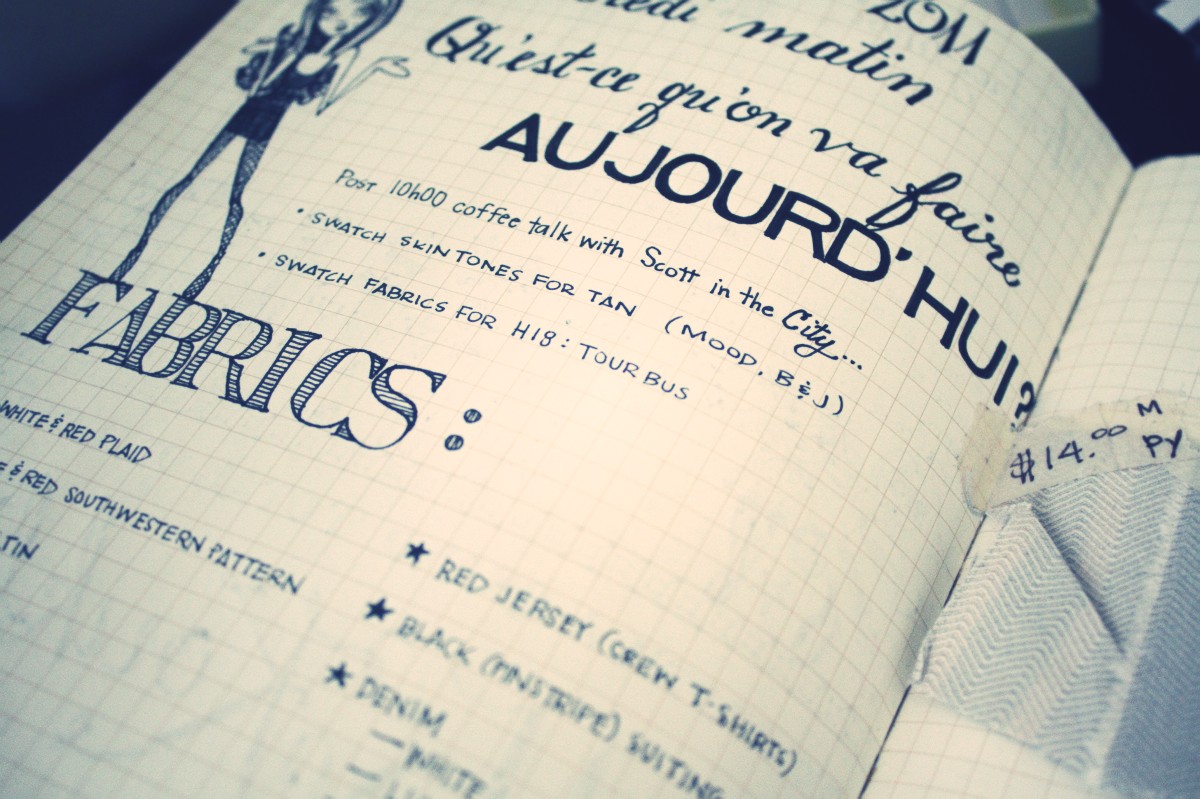 matin
Qu'est-ce qu'on va faire
AUJOURD'HUI?
POST 10h00 coffee talk with Scott in the City...
• SWATCH SKIN TONES FOR TAN (MOOD, B & J)
• SWATCH FABRICS FOR H18: TOUR BUS
FABRICS:
WHITE & RED PLAID
& RED SOUTHWESTERN PATTERN
★ RED JERSEY (CREW T-SHIRTS)
★ BLACK (PINSTRIPE) SUITING
★ DENIM
— WHITE
$14.00 M
PY